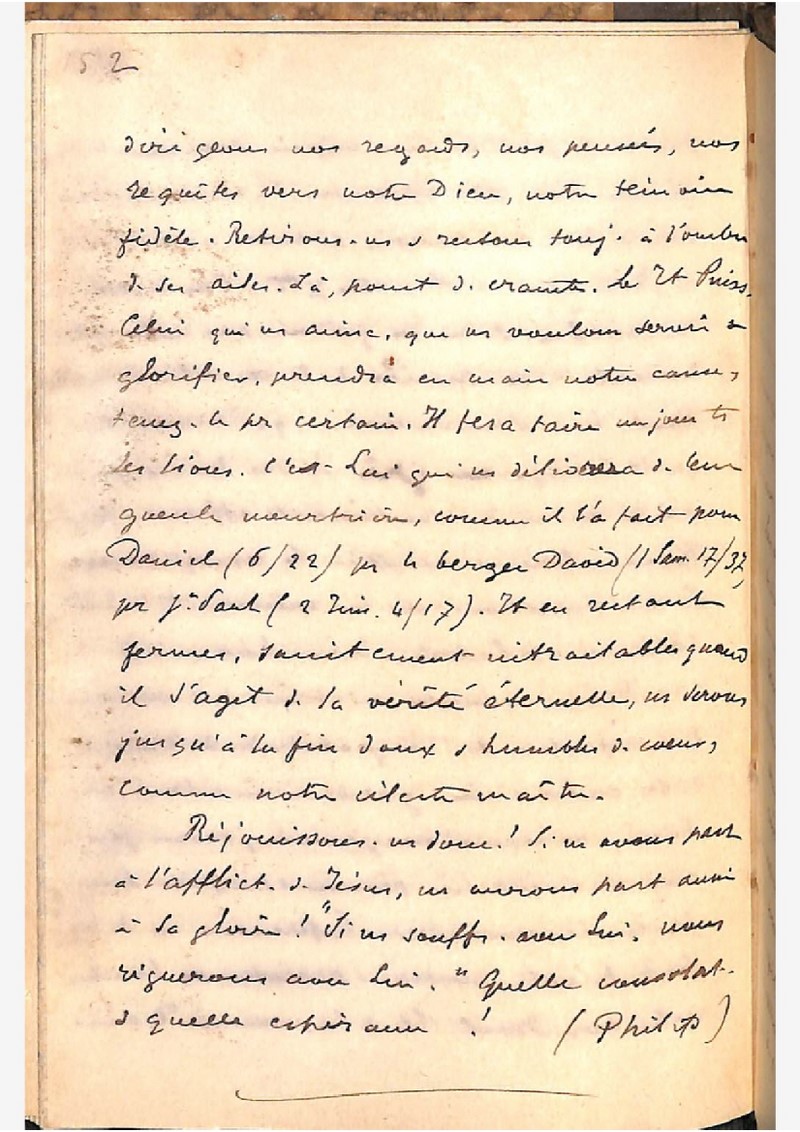 52
dirigeons nos regards, nos pensées, nos
requêtes vers notre Dieu, notre témoin
fidèle. Retirons-ns & restons touj. à l'ombre
d. ses ailes. Là, point d. crainte. Le Tt Puiss.
Celui qui ns aime, que ns voulons servir &
glorifier, prendra en main notre cause,
ten. le pr certain. Il fera taire un jour ts
les lions. C'est Lui qui ns délivrera de leur
gueule meurtrière, comme il l'a fait pour
Daniel (6/22) pr le berger David (1 Sam. 17/37,
pr St Paul (2 Tim. 4/17). Et en restant
fermes, saintement intraitables quand
il s'agit de la vérité éternelle, ns serons
jusqu'à la fin doux & humbles d. coeur,
comme notre céleste maître.
Réjouissons-ns donc! Si ns avons part
à l'afflict. d. Jésus, ns aurons part aussi
à Sa gloire! "Si ns souffr. avec Lui, nous
régnerons avec Lui." Quelle consolat.
& quelle espérance! (Philip)